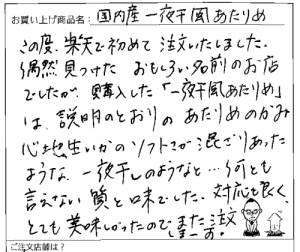 お買い上げ商品名：国内産一夜干風あたりめ
この度、楽天で初めて注文いたしました。
偶然見つけた おもしろい名前のお店
でしたが、購入した「一夜干風あたりめ」
は、説明のとおりの あたりめのかみ
心地と生いかのソフトさが混ざりあった
ような 一夜干しのようなと… 何とも
言えない 質と味でした。対応も良く、
とても 美味しかったので、また注文
しま す。
ご注文店舗は？